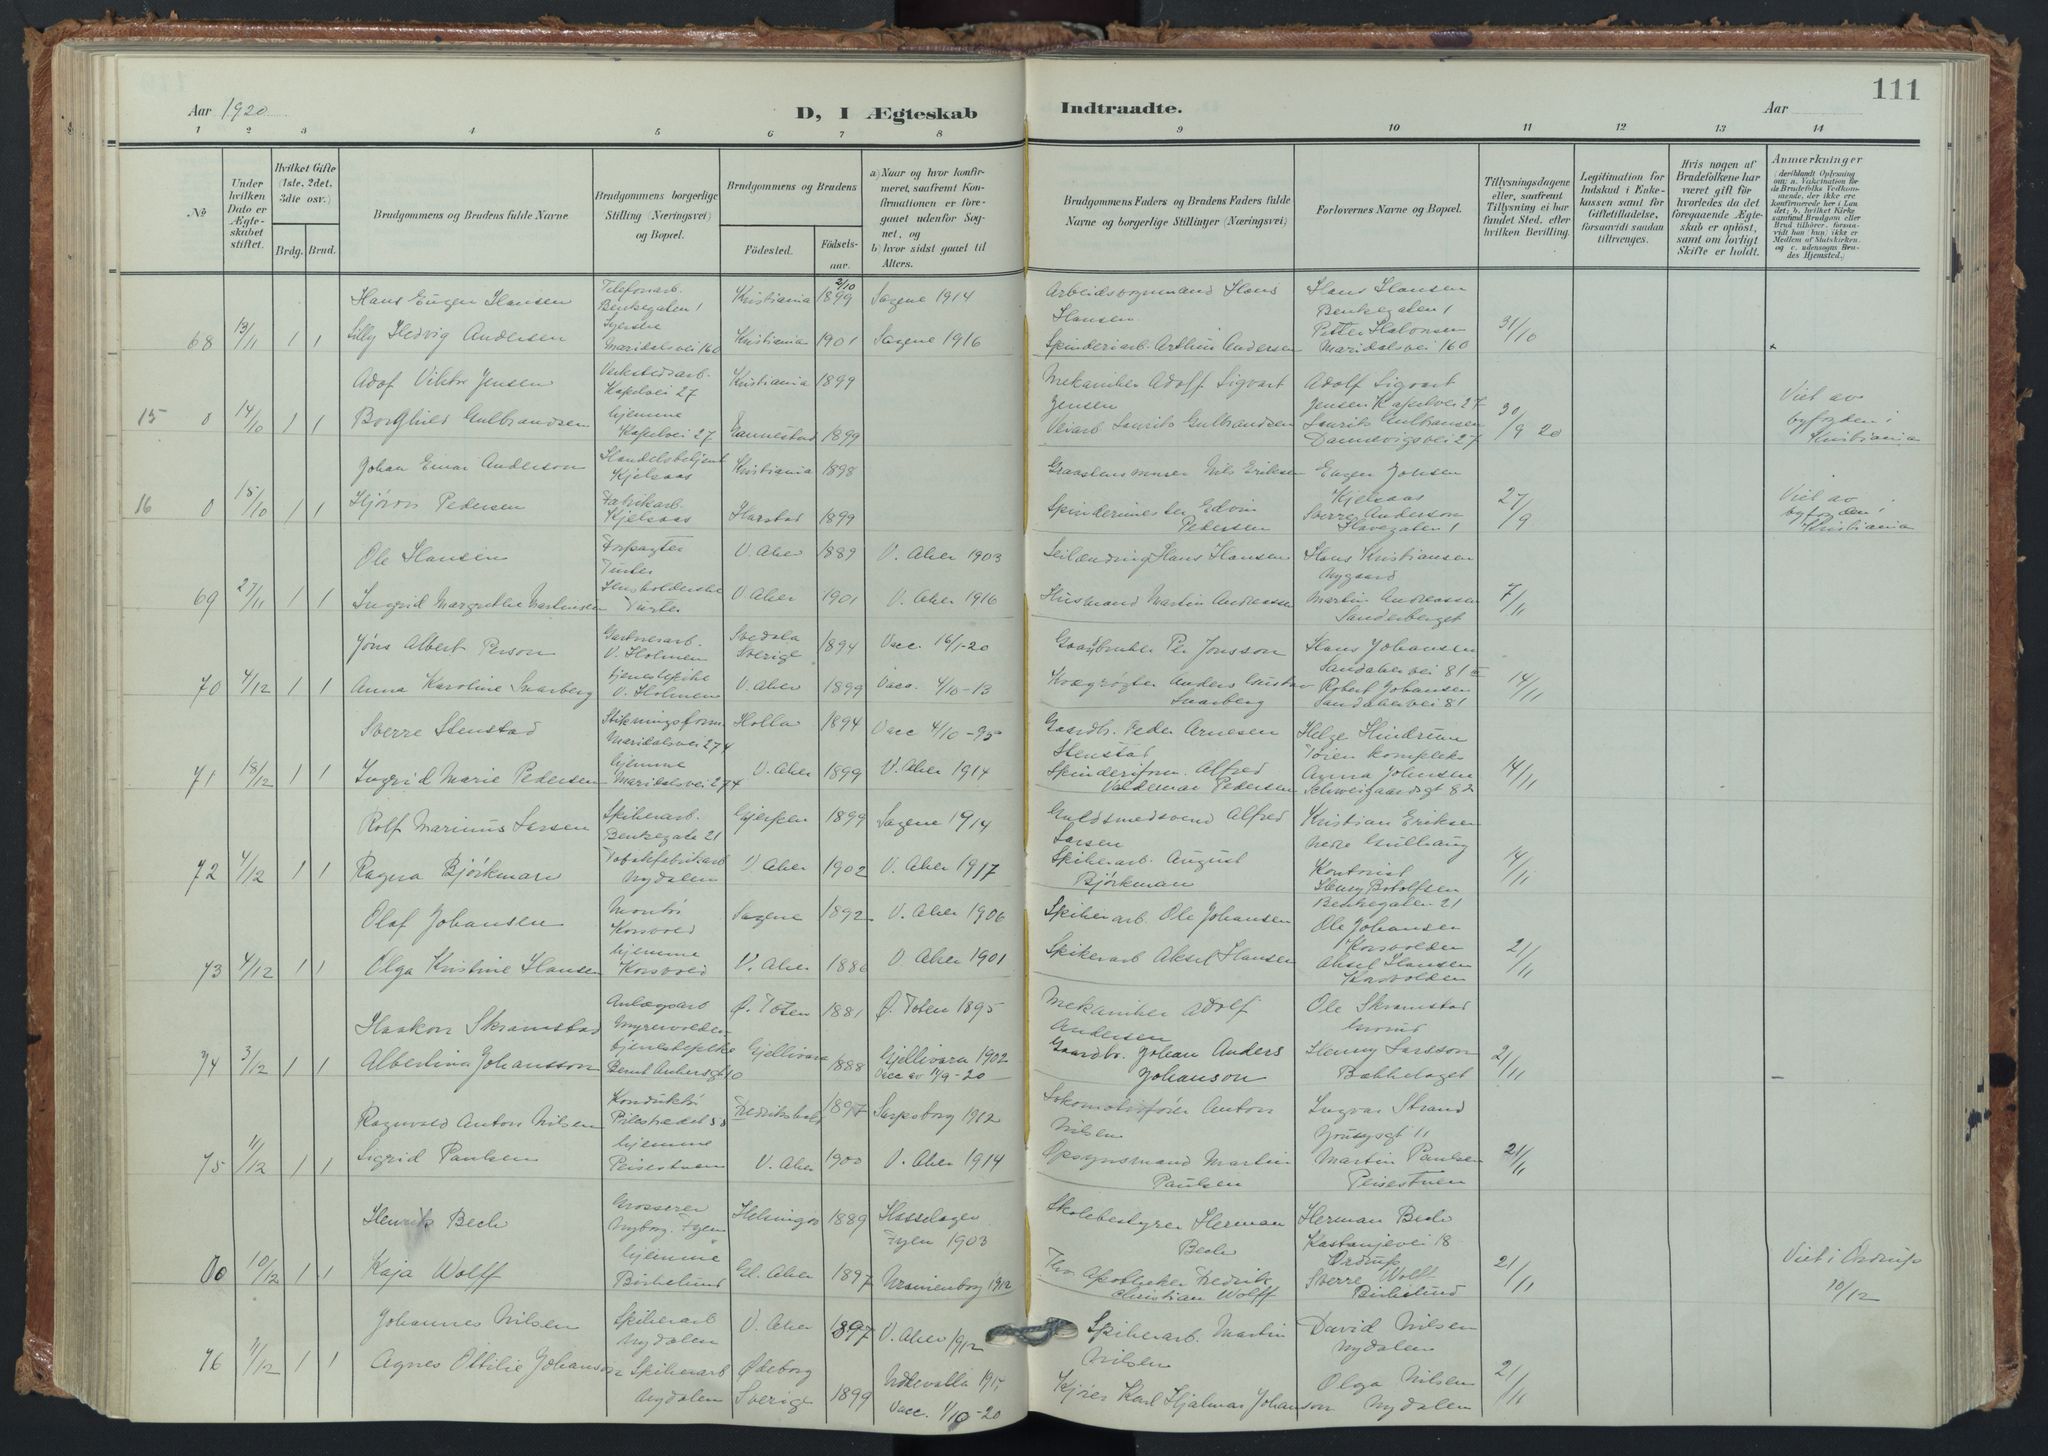 Aar 1920
D, I Ægteskab
Indtraadte.
Aar
111
1 2 3 4 5 6 7 8 9 10 11 12 13 14
№
Under hvilken Dato er Ægteskabet stiftet.
Hvilket Gifte (1ste, 2det, 3die osv.)
Brdg. Brud.
Brudgommens og Brudens fulde Navne
Brudgommens borgerlige Stilling (Næringsvei) og Bopæl.
Brudgommens og Brudens
Fødested.
Fødselsaar.
a) Naar og hvor konfirmeret, saafremt Konfirmationen er foregaaet udenfor Sognet, og
b) hvor sidst gaaet til Alters.
Brudgommens Faders og Brudens Faders fulde Navne og borgerlige Stillinger (Næringsvei)
Forlovernes Navne og Bopæl.
Tillysningsdagene eller, saafremt Tillysning ei har fundet Sted, efter hvilken Bevilling.
Legitimation for Indskud i Enkekassen samt for Giftetilladelse, forsaavidt saadan tiltrænges.
Hvis nogen af Brudefolkene har været gift før hvorledes da det foregaaende Ægteskab er opløst, samt om lovligt Skifte er holdt.
Anmærkninger (deriblandt Oplysning om: a. Vakcination for de Brudefolks Vedkommende, der ikke ere konfirmerede her i Landet; b. hvilket Kirkesamfund Brudgom eller Brud tilhører, forsaavidt han (hun) ikke er Medlem af Statskirken og c. udensogns Brudes Hjemsted.)
Hans Eugen Hansen Telefonarb. Benkegaten 1 Kristiania 2/10 1899 Sagene 1914 Arbeidsvognmand Hans Hansen Hans Hansen Benkegaten 1
68 13/11 1 1 Lilly Hedvig Andersen Syerske Maridalsvei 160 Kristiania 1901 Sagene 1916 Spinderiarb. Arthur Andersen Petter Halvorsen Maridalsvei 160 31/10
Adof Viktor Jensen Verkstedsarb. Kapelvei 27 Kristiania 1899 Mekaniker Adolf Sigvart Jensen Adolf Sigvart Jensen Kapelvei 27
15 0 14/10 1 1 Borghild Gulbrandsen hjemme Kapelvei 27 1899 Veiarb. Laurits Gulbrandsen Laurits Gulbransen 30/9 20 Viet av byfogden i Kristiania
Johan Einar Anderson Handelsbetjent Kjelsaas Kristiania 1898 Nils Eriksen Eugen Jonsen Kjelsaas
16 0 15/10 1 1 Hjørdis Pedersen Fabrikarb. Kjelsaas Harstad 1899 Spindemester Edvin Pedersen Sverre Anderson 27/9 Viet av byfogden i Kristiania
Ole Hansen Forpagter V. Aker 1889 V. Aker 1903 Hans Hansen Hans Kristiansen Nygaard
69 27/11 1 1 Ingrid Margrethe Martinsen V. Aker 1901 V. Aker 1916 Husmand Martin Andreassen Martin Andreassen Sanderberget 7/11
Jöns Albert Person Gartnerarb. V. Holmen Svedala Sverige 1894 Vacc. 16/1-20 Gaardbruker Per Jonsson Hans Johansen Sandakervei 81 III
70 4/12 1 1 Anna Karoline Svarberg tjenestepike V. Holmen V. Aker 1899 Vacc. 4/10-13 Kvægrøgter Anders Gustav Svarberg Robert Johansen Sandakervei 81 14/11
Sverre Stenstad Maridalsvei 274 Holla 1894 Vacc 4/10-95 Gaardb. Peder Arnesen Stenstad Helge Hindrum Tøien kompleks
71 18/12 1 1 Ingrid Marie Pedersen hjemme Maridalsvei 274 V. Aker 1899 V. Aker 1914 Spinderiform. Alfred Valdemar Pedersen Anna Johnsen Schweigaardsgt 82 14/11
Rolf Marinus Larsen Spikerarb. Benkegate 21 Gjerpen 1899 Sagene 1914 Guldsmedsvend Alfred Larsen Kristian Eriksen
72 4/12 1 1 Ragna Bjørkman Tobakfabrikarb Nydalen V. Aker 1902 V. Aker 1917 Spikerarb. August Bjørkman Kontorist Henry Botolfsen Benkegaten 21 14/11
Olaf Johansen Montør Korsvold Sagene 1892 V. Aker 1906 Spikerarb. Ole Johansen Ole Johansen Korsvolden
73 4/12 1 1 Olga Kristine Hansen hjemme Korsvold V. Aker 1886 V Aker 1901 Spikerarb Aksel Hansen Aksel Hansen Korsvolden 21/11
Haakon Skramstad Anlægsarb Ø. Toten 1881 Ø. Toten 1895 Mekaniker Adolf Andersen Ole Skramstad Grorud
74 3/12 1 1 Albertina Johansson tjenestepike Bernt Ankersgt 10 Gjellivara 1888 Gjellivara 1902 Vacc av 11/9-20 Gaardbr. Johan Anders Johanson Henny Larsson Bækkelaget 21/11
Ragnvald Anton Nilsen Konduktør Pilestrædet 58 Fredrikshald 1897 Sarpsborg 1912 Lokomotivfører Anton Nilsen Ingvar Strand
75 11/12 1 1 Sigrid Paulsen hjemme Peisestuen V. Aker 1900 V. Aker 1914 Opsynsmand Martin Paulsen Martin Paulsen Peisestuen 21/11
Henrik Bech Grosserer Nyborg. Fyen Helsingør 1889 Fyen 1903 Skolebestyrer Herman Bech Herman Bech Kastanjevei 18 Ordrup
00 10/12 1 1 Kaja Wolff hjemme Birkelund Gl. Aker 1897 Uranienborg 1912 Apotheker Fredrik Christian Wolff Sverre Wolff Birkelund 21/11 Viet i Ordrup 10/12
Johannes Nilsen Spikerarb Nydalen V. Aker 1897 V. Aker 1912 Spikerarb. Martin Nilsen David Nilsen Nydalen
76 11/12 1 1 Agnes Ottilie Johanson Spikerarb Nydalen Ødeborg Sverige 1899 Uddevalla Vacc. 1/10-20 Kjører Karl Hjalmar Johanson Olga Nilsen Nydalen 21/11